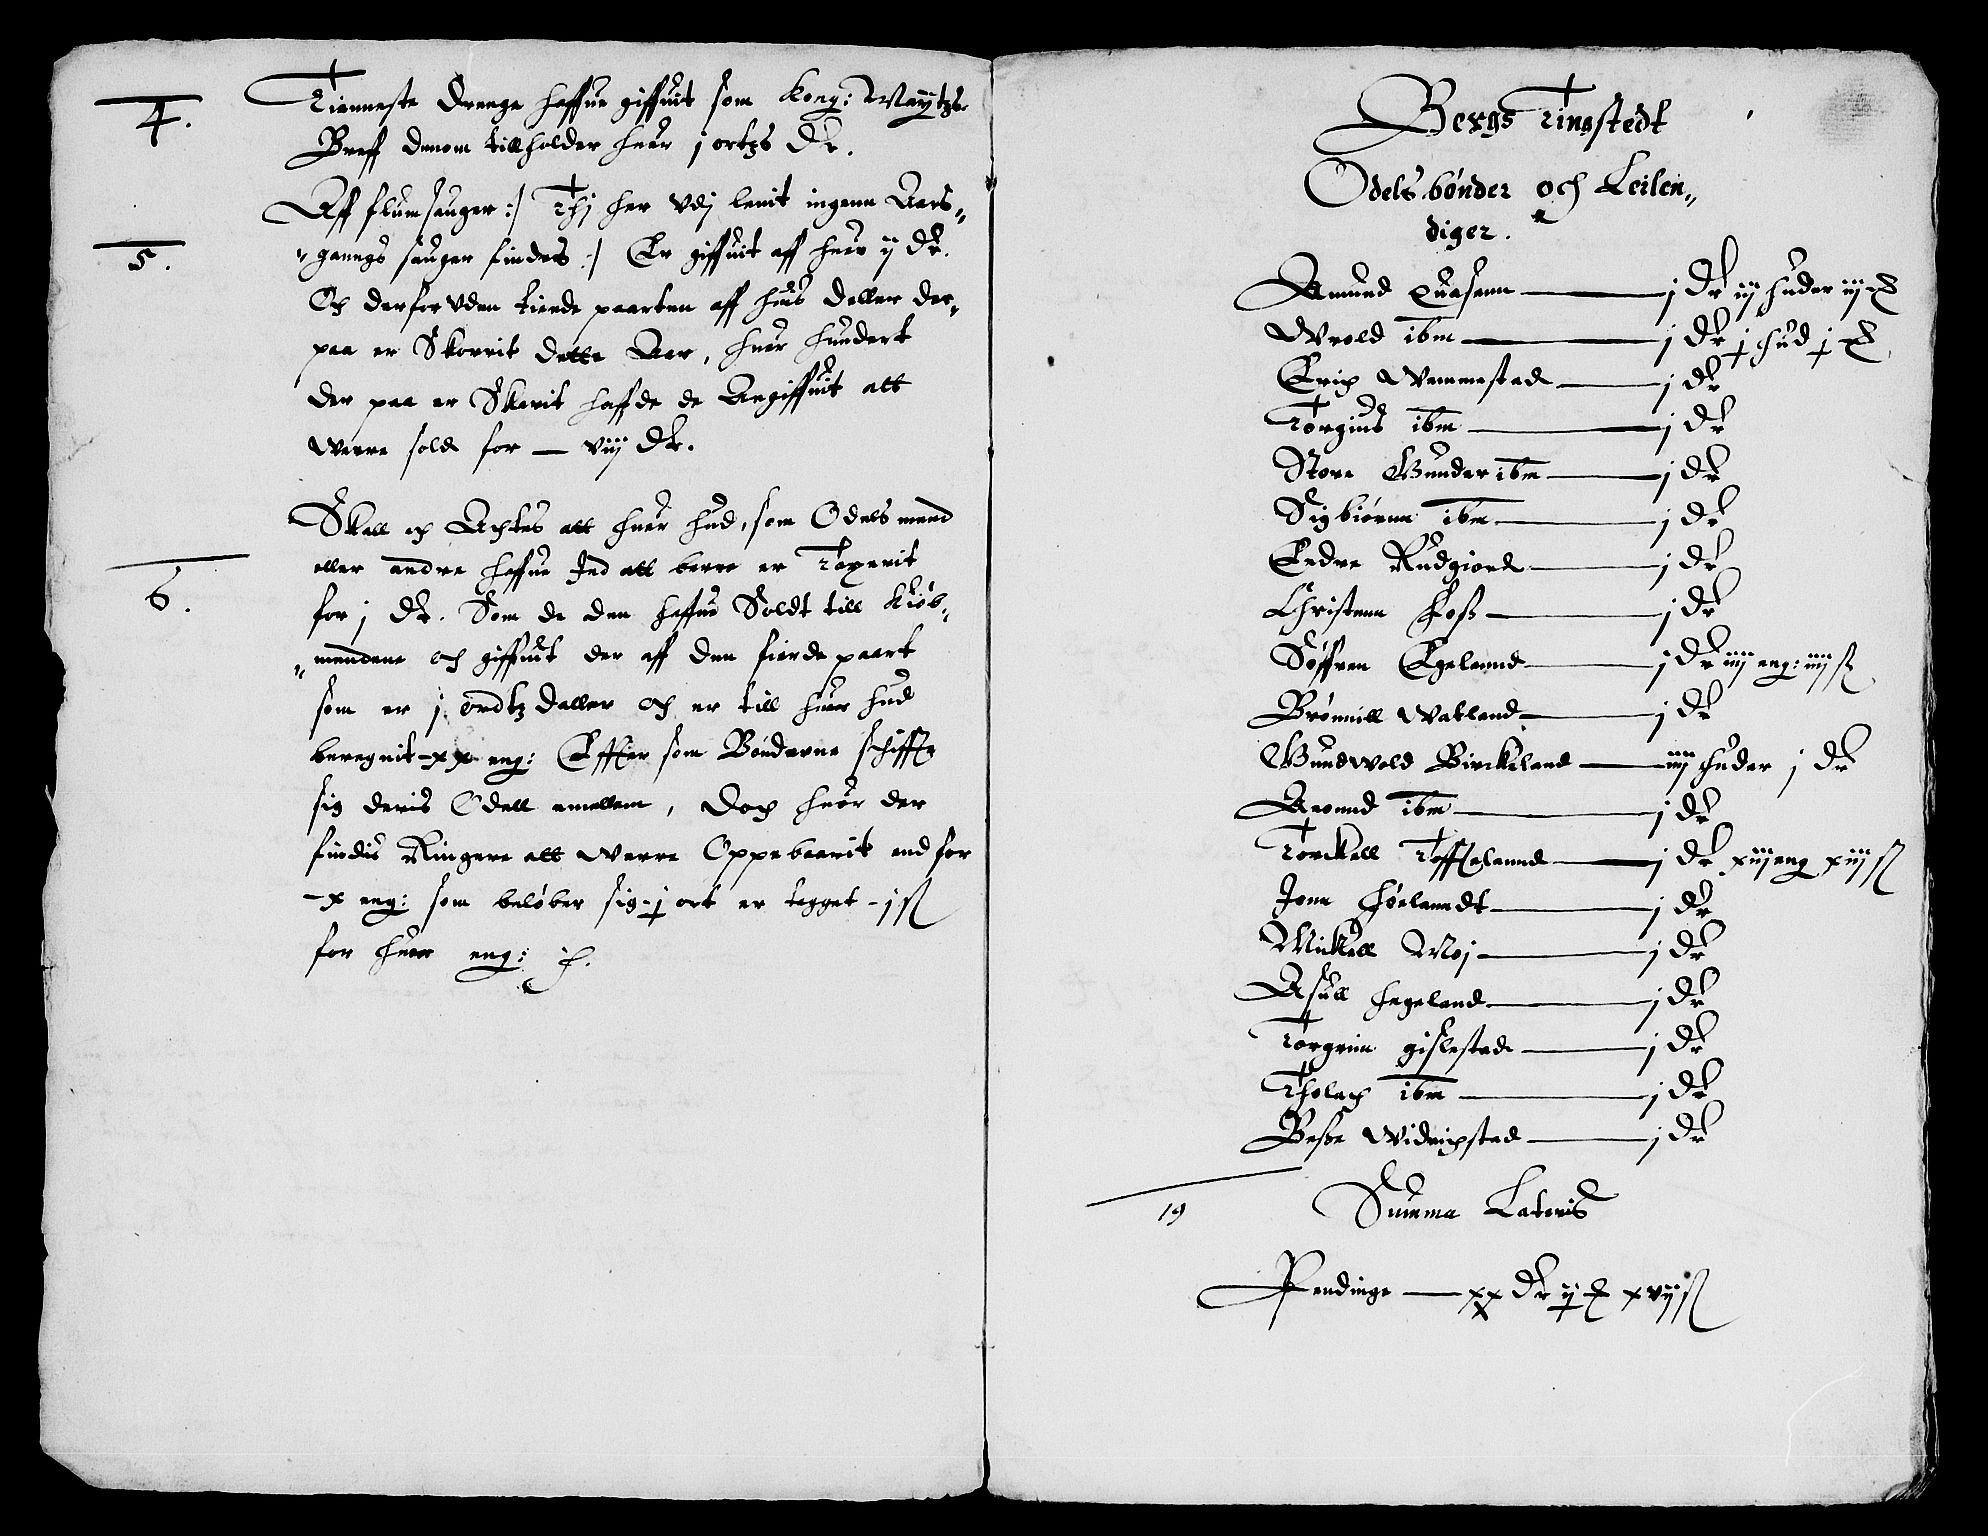 4.
Tienneste drenge haffue giffuit som Kong: Maÿtzs
Breff denom tillholder huer j ortzs Dr.
5.
Aff flumsauger :/ Thj her Vdj lenit ingenn Aars„
„ganngs sauger findes :/ Er giffuit aff huer ij Dr.
Och derforVden tiende paarten aff huis deller der„
paa er Skorrit dette Aar, huer hundert
der paa er Skarit haffde de Angiffuit att
Werre sold for — viij Dr.
6.
Skall och Achtes att huer hud, som Odels mend
eller andre haffue Ind att berre er Taxerit
for j Dr. Som de den haffue Soldt till Kiøb„
„mendene och giffuit der aff den fierde paart
som er j ordtz daller och er till huer hud
beregnit xx eng: Effter som Bønderne schiffte
sig deris Odell emellem, Doch huor der
findis Ringere att Werre Oppebaarit end for
x eng: som beløber sig j ort er tagget j ß
for huer eng:
Bergs Tingstedt
Odelsbønder och Leilen„
diger.
Amund Quasenn — j Dr iij huder iij
Wrold ibm — j Dr j hud j
Erich Wemmestad — j Dr
Torgius ibm — j Dr
Store Gunder ibm — j Dr
Sigbiørnn ibm — j Dr
Endre Rudgiord — j Dr
Christenn Foss — j Dr
Søffren Egelannd — j Dr iiij eng: iiij ß
Brønnill Watland — j Dr
Gundwold Birckeland — iiij huder j Dr
Aronnd ibm — j Dr
Torckell Tofftelannd — j Dr xiij eng xiij ß
Jonn Førlanndt — j Dr
Mickell Moj — j Dr
Asull Hegeland — j Dr
Torgrim gislestad — j Dr
Tholach ibm — j Dr
Besse Widrichstad — j Dr
19
Summa Lateris
Pendinge — xx Dr ij xvij ß